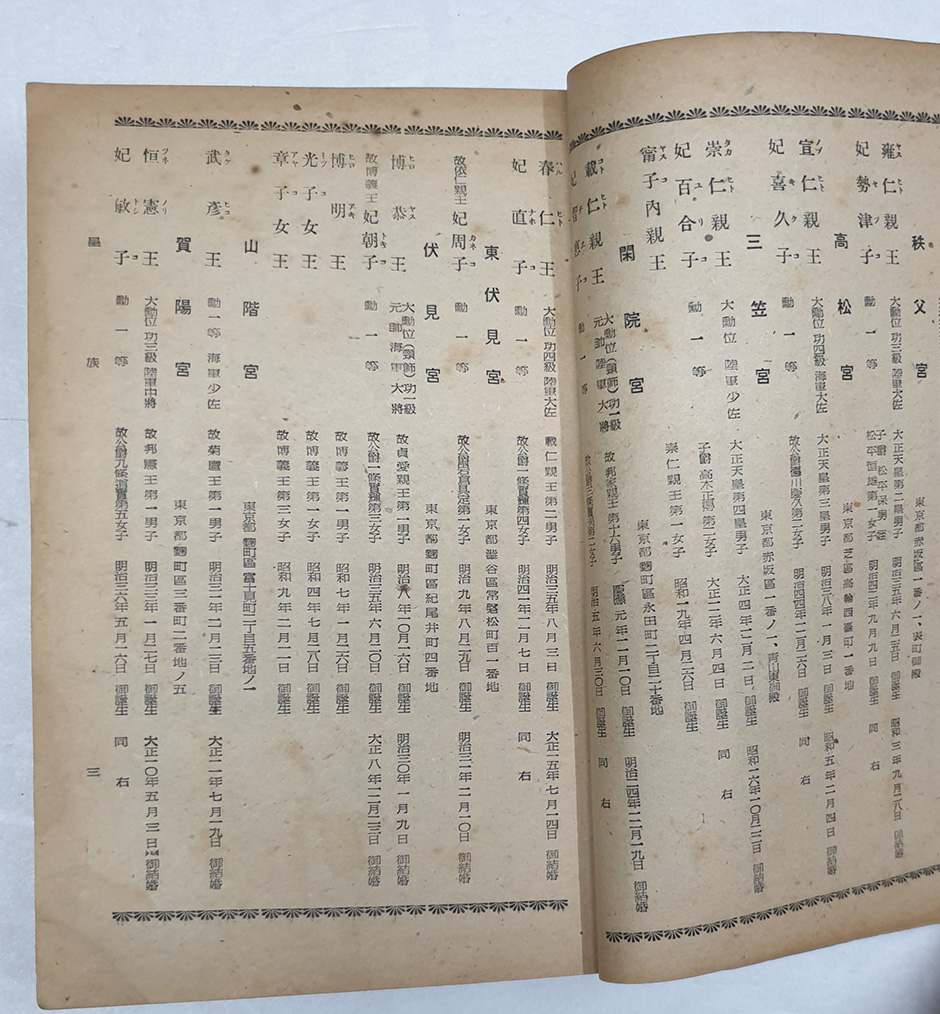 秩父宮 東京都赤坂區一番ノ一、表町御殿
雍仁親王 大勳位 功三級 陸軍大佐 大正天皇第二皇男子 明治三五年六月二五日 御誕生 昭和三年九月二八日 御結婚
妃勢津子 勳一等 子爵 松平保男 姪 松平恒雄第一女子 明治四二年九月九日 御誕生 同右
高松宮 東京都芝區高輪西臺町一番地
宣仁親王 大勳位 功四級 海軍大佐 大正天皇第三皇男子 明治三八年一月三日 御誕生 昭和五年二月四日 御結婚
妃喜久子 勳一等 故公爵德川慶久第二女子 明治四四年一二月二六日 御誕生 同右
三笠宮 東京都赤坂區一番ノ一、青山東御殿
崇仁親王 大勳位 陸軍少佐 大正天皇第四皇男子 大正四年一二月二日 御誕生 昭和一六年一〇月二二日 御結婚
妃百合子 勳一等 子爵 高木正得 第二女子 大正一二年六月四日 御誕生 同右
甯子內親王 崇仁親王第一女子 昭和一九年四月二六日 御誕生
閑院宮 東京都麴町區永田町二丁目二十番地
載仁親王 大勳位(頸飾)功一級 元帥陸軍大將 故邦家親王第十六男子 慶應元年一一月一〇日 御誕生 明治二四年一二月一九日 御結婚
妃智惠子 勳一等 故公爵三條實美第二女子 明治五年六月三〇日 御誕生 同右
春仁王 大勳位 功四級 陸軍大佐 載仁親王第二男子 明治三五年八月三日 御誕生 大正一五年七月一四日 御結婚
妃直子 勳一等 故公爵一條實輝第四女子 明治四一年一一月七日 御誕生 同右
東伏見宮 東京都澁谷區常磐松町百一番地
故依仁親王妃周子 勳一等 故公爵岩倉具定第一女子 明治九年八月二九日 御誕生 明治三一年二月一〇日 御結婚
伏見宮 東京都麴町區紀尾井町四番地
博恭王 大勳位(頸飾)功一級 元帥海軍大將 故貞愛親王第一男子 明治八年一〇月一六日 御誕生 明治三〇年一月九日 御結婚
故博義王妃朝子 勳一等 故公爵一條實輝第三女子 明治三五年六月二〇日 御誕生 大正八年一二月二三日 御結婚
博明王 故博義王第一男子 昭和七年一月二六日 御誕生
光子女王 故博義王第一女子 昭和四年七月二八日 御誕生
章子女王 故博義王第三女子 昭和九年二月一一日 御誕生
山階宮 東京都麴町區富士見町二丁目五番地ノ一
武彥王 勳一等 海軍少佐 故菊麿王第一男子 明治三一年二月一三日 御誕生 大正一一年七月一九日 御結婚
賀陽宮 東京都麴町區三番町二番地ノ五
恒憲王 大勳位 功三級 陸軍中將 故邦憲王第一男子 明治三三年一月二七日 御誕生 大正一〇年五月三日 御結婚
妃敏子 勳一等 故公爵九條道實第五女子 明治三六年五月一六日 御誕生 同右
皇族 三